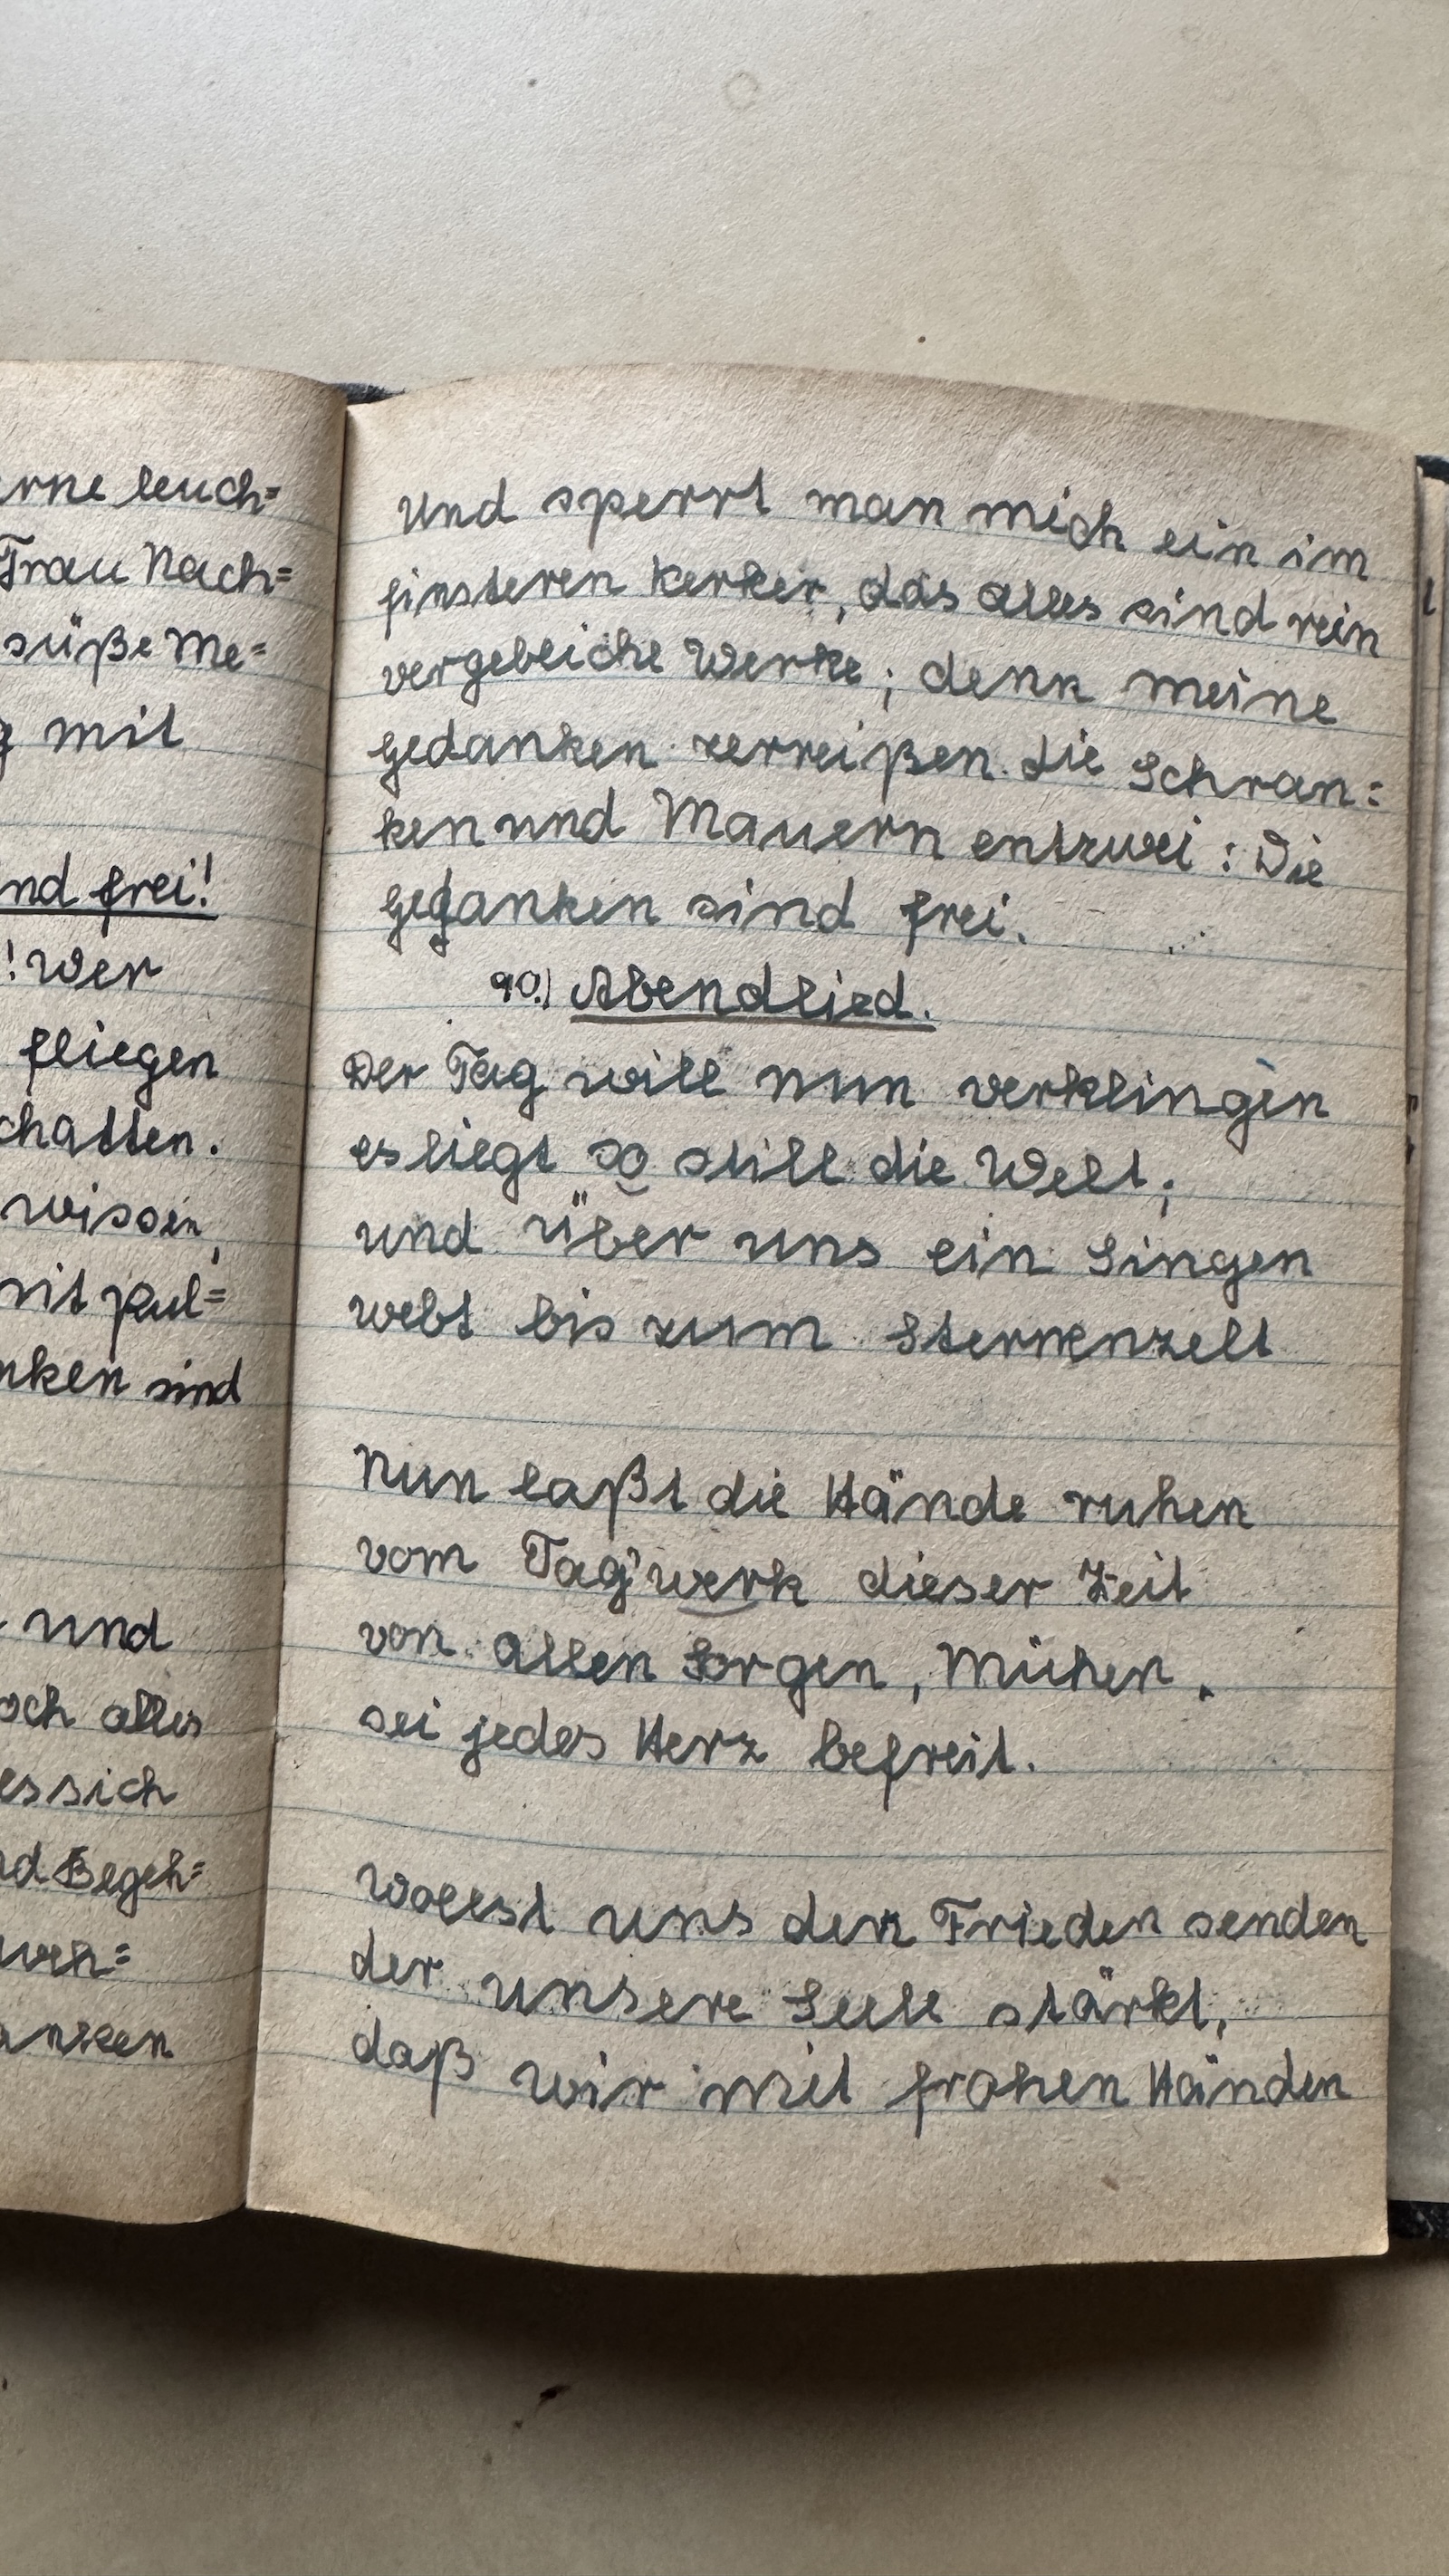 erne leuch=
Frau Nach=
süße Me=
mit
nd frei!
! Wer
fliegen
chatten.
wissen,
mit pul=
nken sind
und
och alles
es sich
nd Begeh=
weh=
anken
Und sperrt man mich ein im
finsteren Kerker, das alles sind rein
vergebliche Werke; denn meine
Gedanken zerreißen die Schran=
ken und Mauern entzwei: Die
Gedanken sind frei.
90.) Abendlied.
Der Tag will nun verklingen
es liegt so still die Welt;
und über uns ein Singen
webt bis zum Sternenzelt
Nun laßt die Hände ruhen
vom Tag'werk dieser Zeit
von allen Sorgen, Mühen,
sei jedes Herz befreit.
Wollst uns den Frieden senden
der unsere Seele stärkt,
daß wir mit frohen Händen